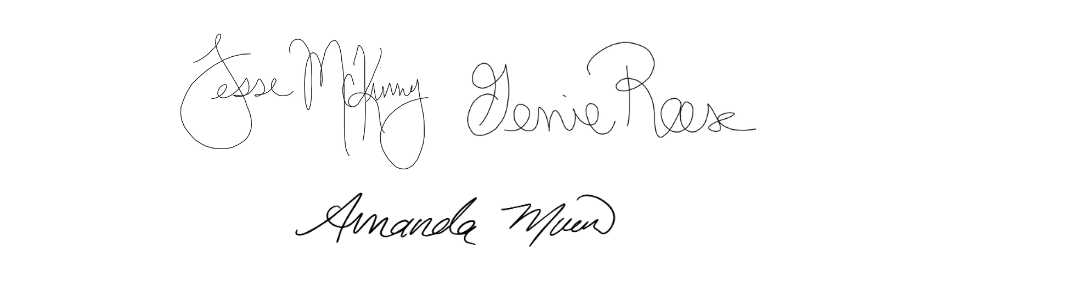 Jesse McKinny Genie Reese
Amanda